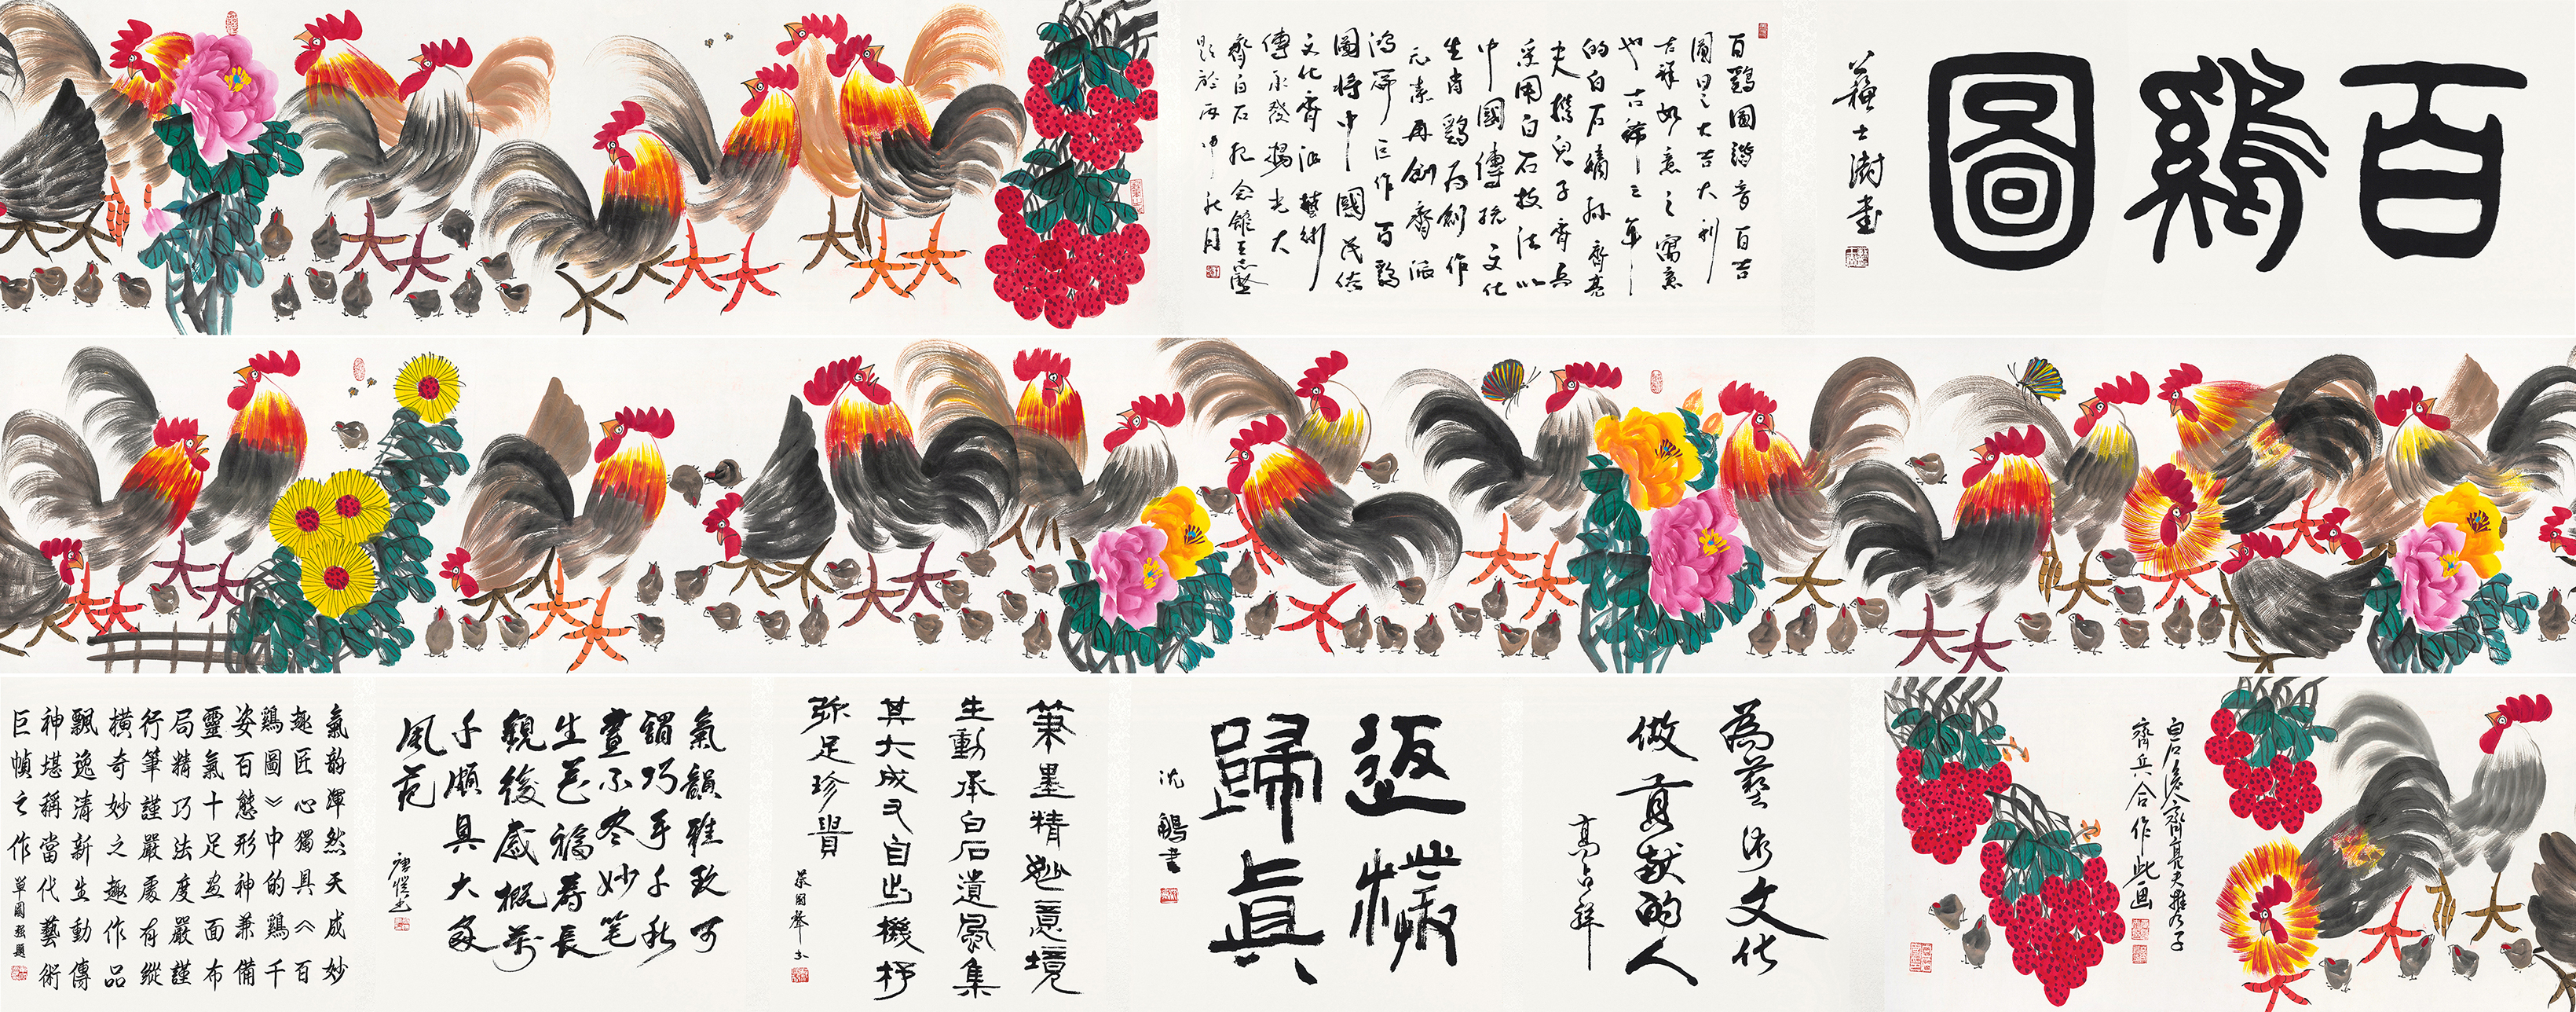 百鷄圖
蘇士澍書
百鷄圖諧音百吉
圖里之大吉大利
吉祥如意之寓意
也古稀之年
的白石嫡孫齊亮
夫携兒子齊兵
采用白石技法以
中國傳統文化
生肖鷄為創作
元素再創齊派
鴻篇巨作百鷄
圖將中國民俗
文化齊派藝術
傳承發揚光大
齊白石紀念館王志堅
題於丙申秋月
白石後人齊亮夫攜子
齊兵合作此画
為藝術文化
做貢献的人
高占祥
返樸
歸真
沈鵬書
筆墨精妙意境
生動承白石遺風集
其大成又自出機杼
弥足珍貴
氣韻雅致可
謂巧手千秋
畫不冬妙笔
生花福寿長
觀後感概萬
千頗具大家
风范
唐愷书
氣韵渾然天成妙
趣匠心獨具《百
鷄圖》中的鷄千
姿百態形神兼備
靈氣十足画面布
局精巧法度嚴謹
行筆謹嚴處有縱
横奇妙之趣作品
飄逸清新生動傳
神堪稱當代藝術
巨幀之作 單國强題